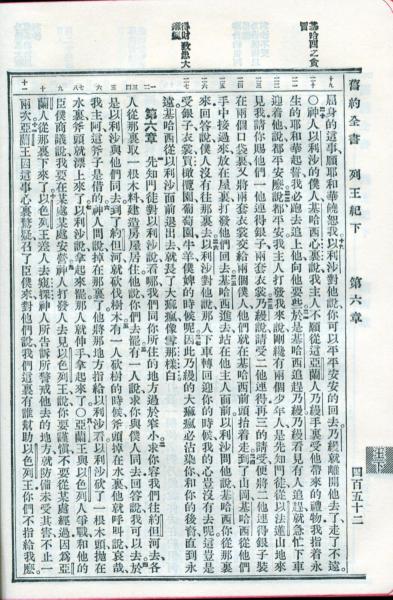 舊約全書 列王紀下 第六章 四百五十二
王下
基哈西之貪冒
得財致患大痲瘋
屈身的事願耶和華饒恕我以利沙對他說你可以平平安安的回去乃縵就離開他去了走了不遠
○神人以利沙的僕人基哈西心裏說我主人不願從這亞蘭人乃縵手裏受他帶來的禮物我指着永
生的耶和華起誓我必跑去追上他向他要些於是基哈西追趕乃縵乃縵看見有人追趕就急忙下車
迎着他說都平安麽說都平安我主人打發我來說剛纔有兩個少年人是先知門徒從以法蓮山地來
見我請你賜他們一他連得銀子兩套衣裳乃縵說請受二他連得再三的請受便將二他連得銀子裝
在兩個口袋裏又將兩套衣裳交給兩個僕人他們就在基哈西前頭抬着走到了山岡基哈西從他們
手中接過來放在屋裏打發他們回去基哈西進去站在他主人面前以利沙問他說基哈西你從那裏
來回答說僕人沒有往那裏去以利沙對他說那人下車轉回迎你的時候我的心豈沒有去呢這豈是
受銀子衣裳買橄欖園葡萄園牛羊僕婢的時候呢因此乃縵的大痲瘋必沾染你和你的後裔直到永
遠基哈西從以利沙面前退出去就長了大痲瘋像雪那樣白
第六章 先知門徒對以利沙說看哪我們同你所住的地方過於窄小求你容我們往約但河去各
人從那裏取一根木料建造房屋居住他說你們去罷有一人說求你與僕人同去回答說我可以去於
是以利沙與他們同去到了約但河就砍伐樹木有一人砍樹的時候斧頭掉在水裏他就呼叫說哀哉
我主阿這斧子是借的神人問說掉在那裏了他將那地方指給以利沙看以利沙砍了一根木頭拋在
水裏斧頭就漂上來了以利沙說拿起來罷那人就伸手拿起來了○亞蘭王與以色列人爭戰和他的
臣僕商議說我要在某處某處安營神人打發人去見以色列王說你要謹愼不要從某處經過因爲亞
蘭人從那裏下來了以色列王差人去窺探神人所告訴所警戒他去的地方就防備未受其害不止一
兩次亞蘭王因這事心裏驚疑召了臣僕來對他們說我們這裏有誰幫助以色列王你們不指給我麽